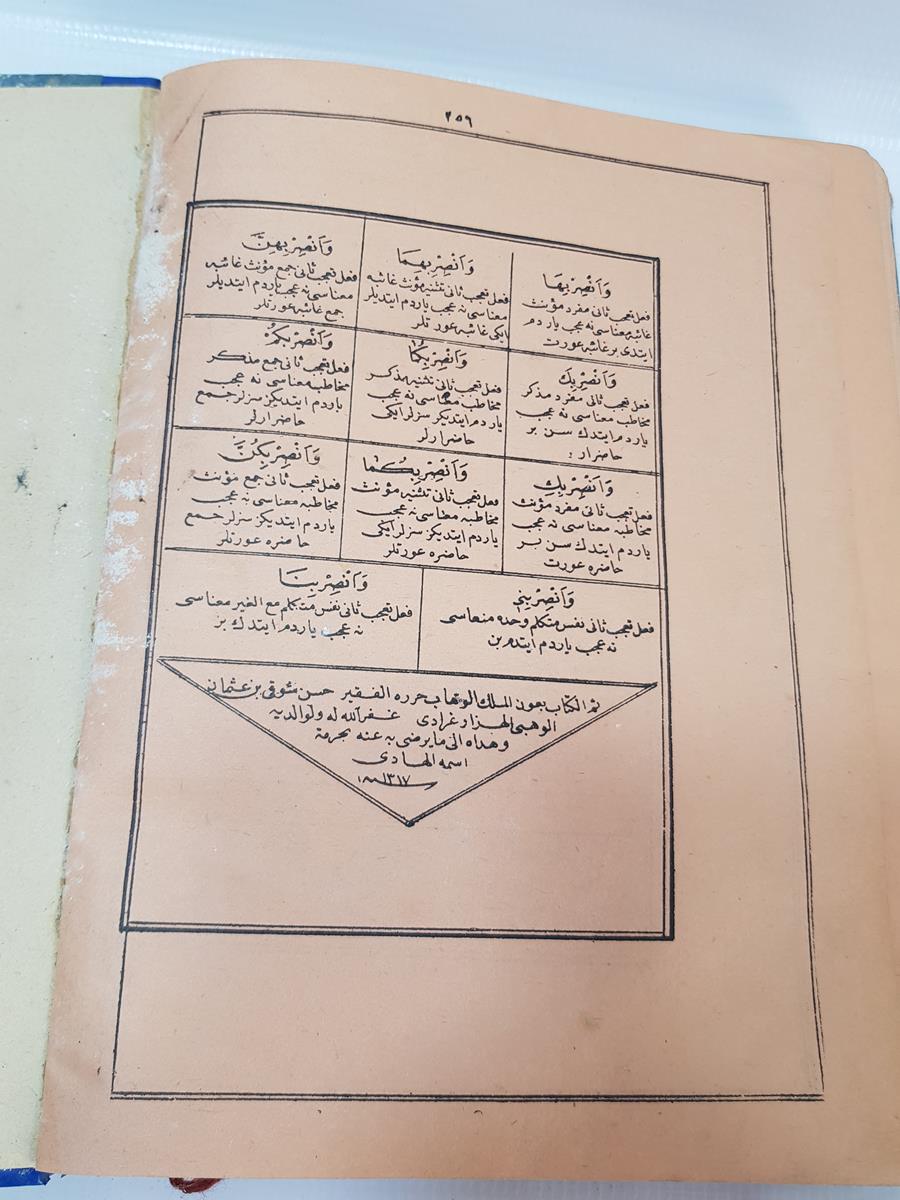 ٢٥٩
وَاَنْصِرْ بِهَا
فعل تعجب ثانى مفرد مؤنث
غائبه معناسى نه عجب ياردم
ايتدى بر غائبه عورت
وَاَنْصِرْ بِهِمَا
فعل تعجب ثانى تثنيه مؤنث غائبه
معناسى نه عجب ياردم ايتديلر
ايكى غائبه عورتلر
وَاَنْصِرْ بِهِنَّ
فعل تعجب ثانى جمع مؤنث غائبه
معناسى نه عجب ياردم ايتديلر
جمع غائبه عورتلر
وَاَنْصِرْ بِكَ
فعل تعجب ثانى مفرد مذكر
مخاطب معناسى نه عجب
ياردم ايتدك سن بر
حاضر ار
وَاَنْصِرْ بِكُمَا
فعل تعجب ثانى تثنيه مذكر
مخاطب معناسى نه عجب
ياردم ايتديكز سزلر ايكى
حاضر ارلر
وَاَنْصِرْ بِكُمْ
فعل تعجب ثانى جمع مذكر
مخاطبه معناسى نه عجب
ياردم ايتديكز سزلر جمع
حاضر ارلر
وَاَنْصِرْ بِكِ
فعل تعجب ثانى مفرد مؤنث
مخاطبه معناسى نه عجب
ياردم ايتدك سن بر
حاضره عورت
وَاَنْصِرْ بِكُمَا
فعل تعجب ثانى تثنيه مؤنث
مخاطبه معناسى نه عجب
ياردم ايتديكز سزلر ايكى
حاضره عورتلر
وَاَنْصِرْ بِكُنَّ
فعل تعجب ثانى جمع مؤنث
مخاطبه معناسى نه عجب
ياردم ايتديكز سزلر جمع
حاضره عورتلر
وَاَنْصِرْ بِى
فعل تعجب ثانى نفس متكلم وحده معناسى
نه عجب ياردم ايتدم بن
وَاَنْصِرْ بِنَا
فعل تعجب ثانى نفس متكلم مع الغير معناسى
نه عجب ياردم ايتدك بز
تم الكتاب بعون الملك الوهاب حرره الفقير حسن شوقى بن عثمان
الوهبى الهزارغرادى غفر الله له ولوالديه
وهداه الى ما يرضى به عنه بحرمة
اسمه الهادى
١٣١٧